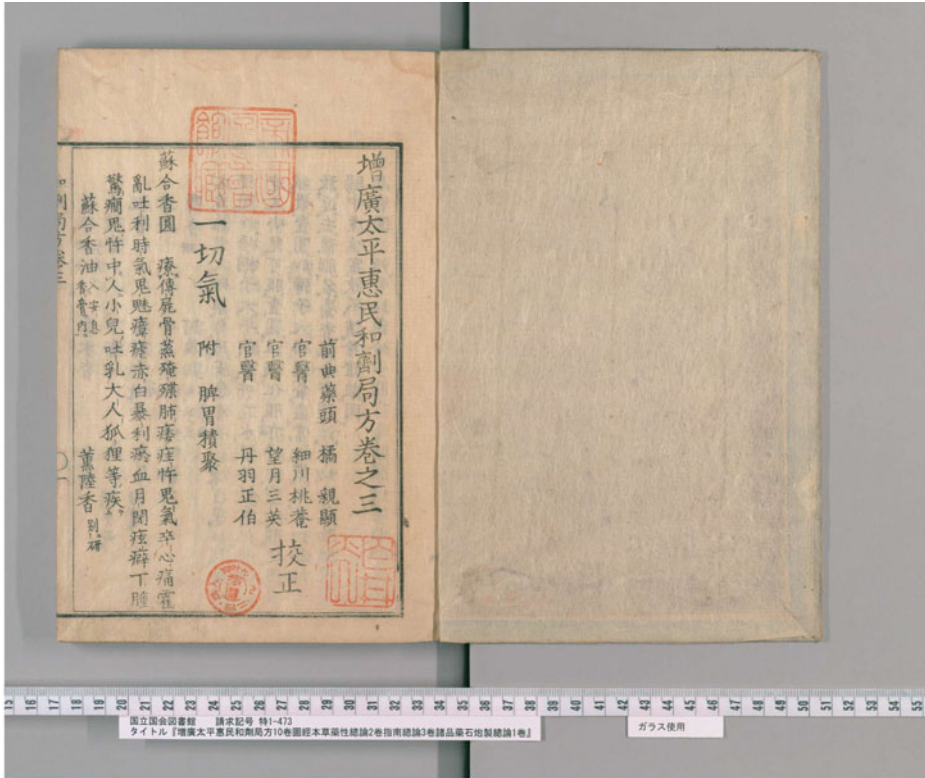 增廣太平惠民和劑局方卷之三
前典藥頭 橘 親顯
官醫 細川桃菴
官醫 望月三英
官醫 丹羽正伯
挍正
一切氣 附 脾胃積聚
蘇合香圓 療傳屍骨蒸殗殜肺痿疰忤鬼氣卒心痛霍
亂吐利時氣鬼魅瘴瘧赤白暴利瘀血月閉痃癖丁腫
驚癇鬼忤中人小兒吐乳大人狐狸等疾
蘇合香油 入安息香膏內 薰陸香 別研
和劑局方卷三
15 16 17 18 19 20 21 22 23 24 25 26 27 28 29 30 31 32 33 34 35 36 37 38 39 40 41 42 43 44 45 46 47 48 49 50 51 52 53 54 55
国立国会図書館 請求記号 特1-473
タイトル『増廣太平惠民和劑局方10巻圖經本草藥性總論2巻指南總論3巻諸品藥石炮製總論1巻』
ガラス使用